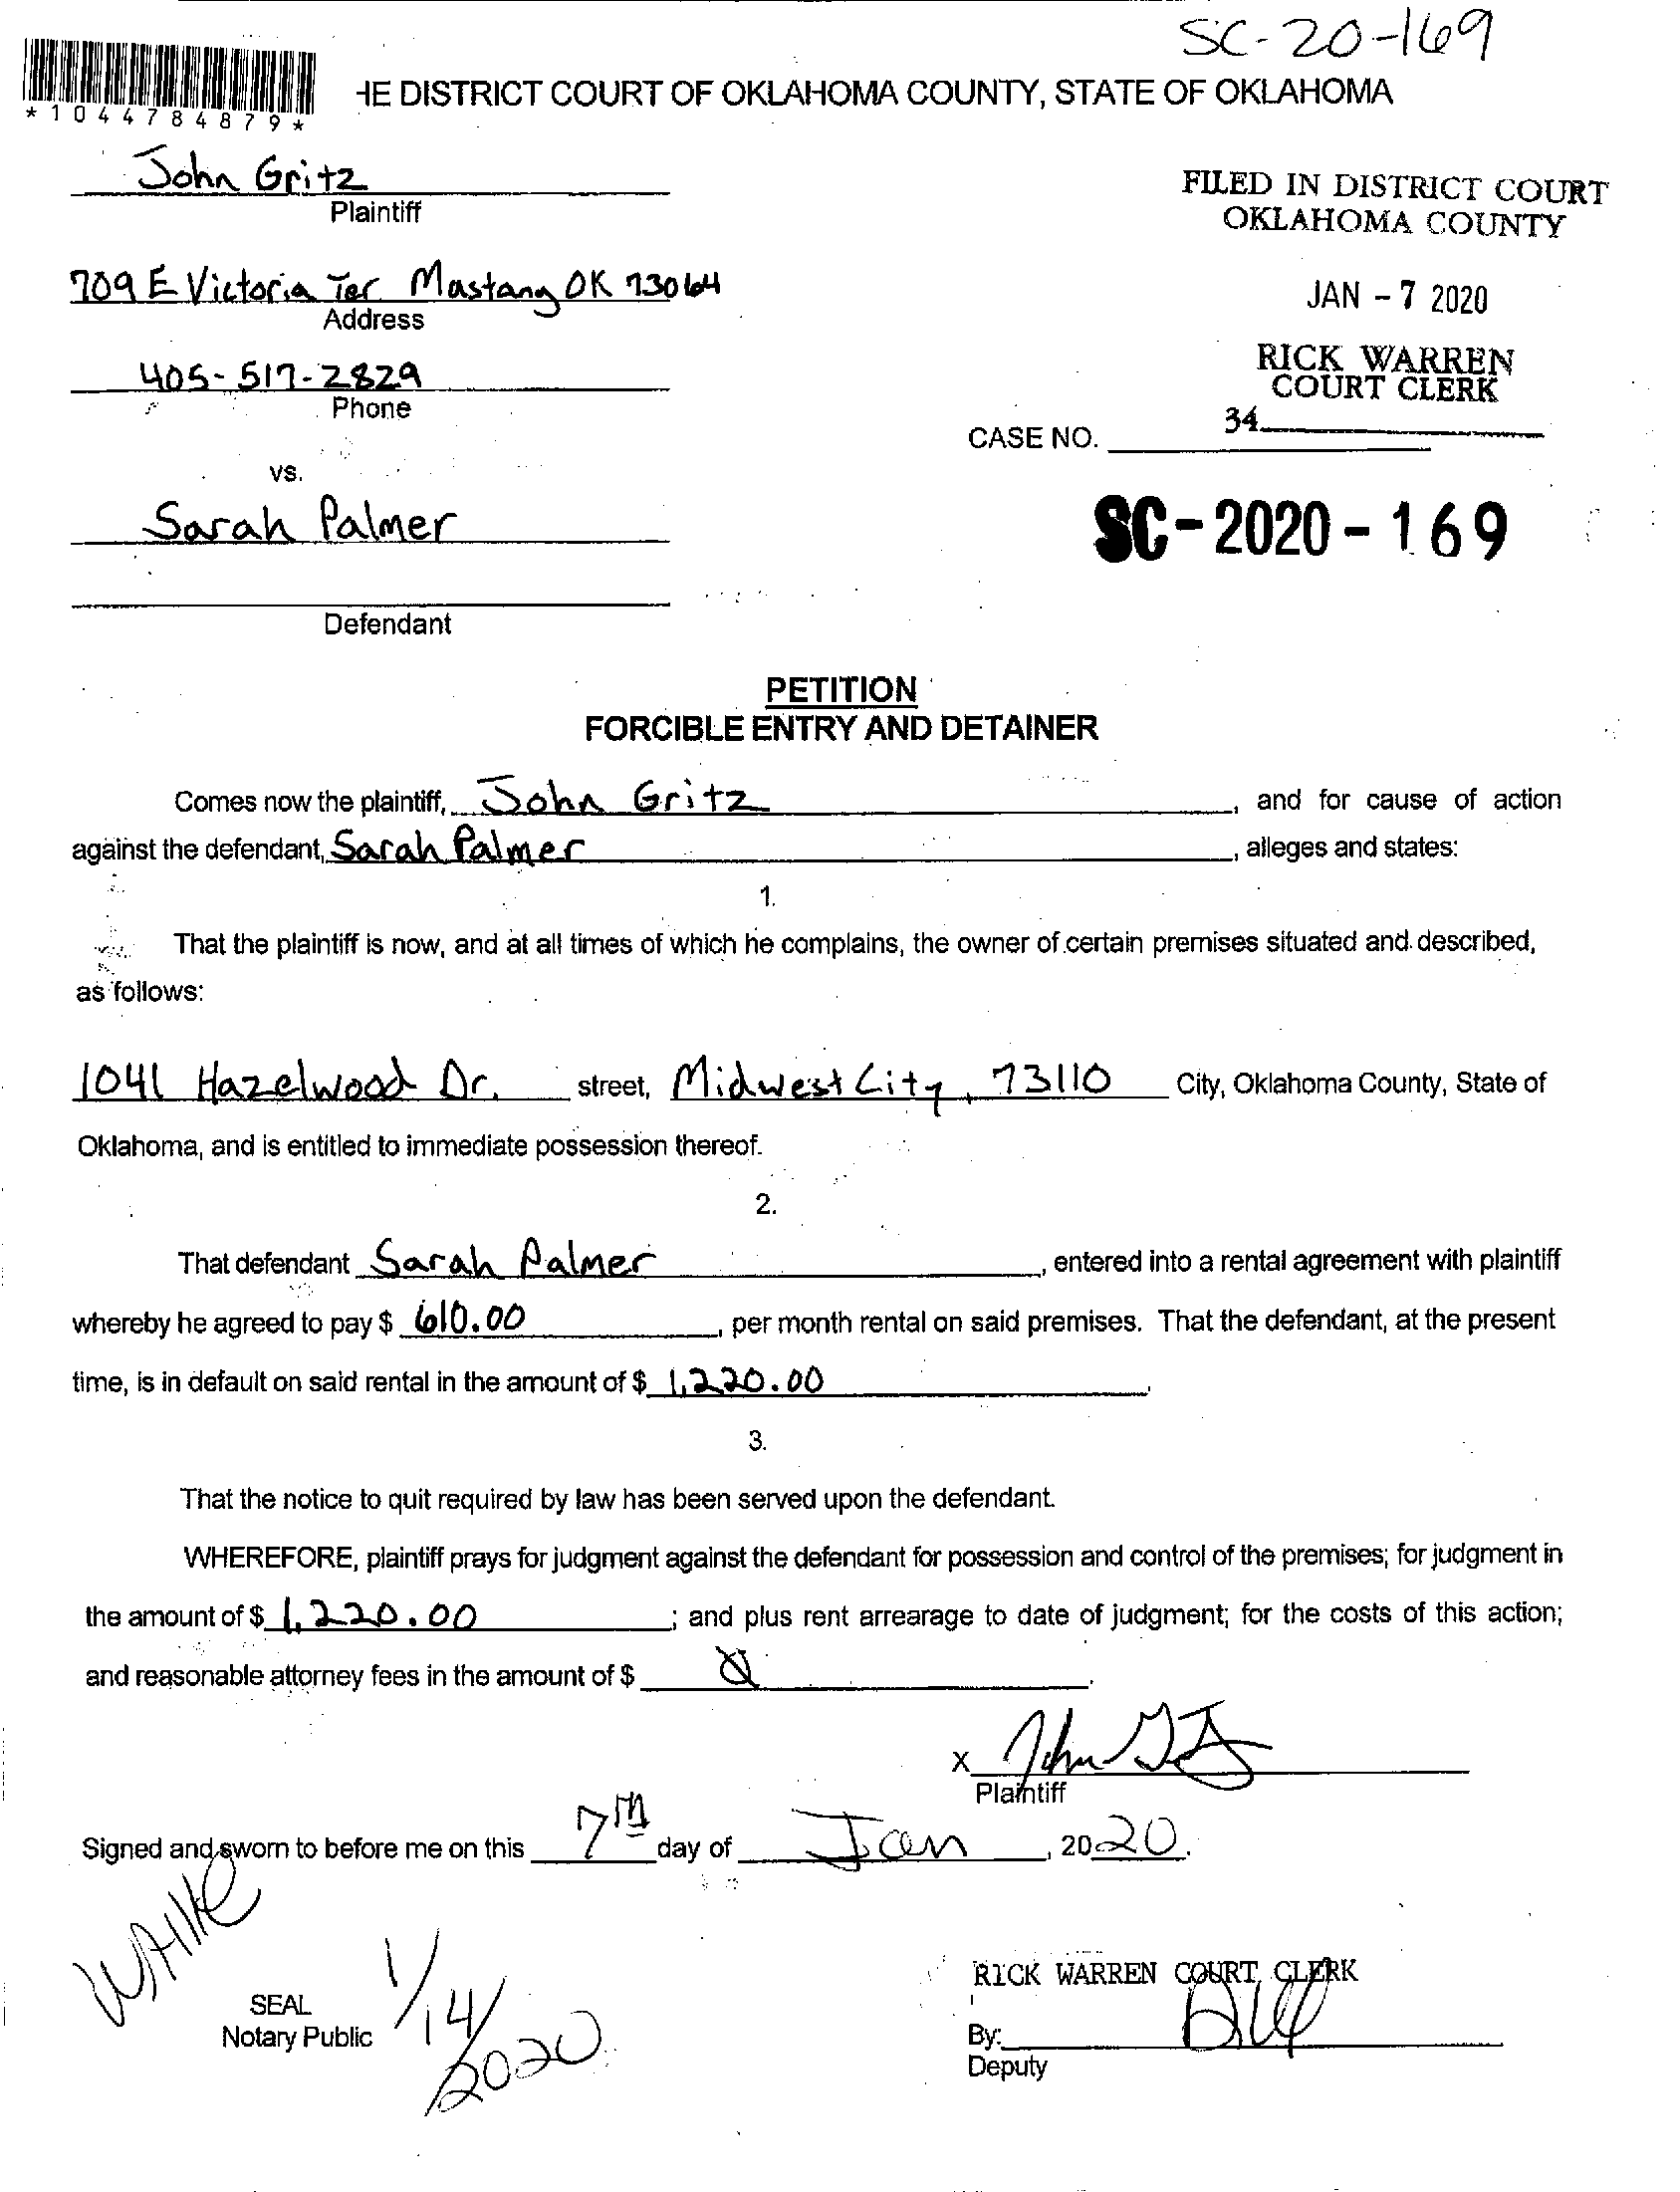 SC-20-169
*1044784879*
HE DISTRICT COURT OF OKLAHOMA COUNTY, STATE OF OKLAHOMA
John Gritz
Plaintiff
FILED IN DISTRICT COURT
OKLAHOMA COUNTY
709 E Victoria Ter Mustang OK 73064
Address
JAN - 7 2020
405-517-2829
Phone
RICK WARREN
COURT CLERK
34
CASE NO.
vs.
Sarah Palmer
SC-2020-169
Defendant
PETITION
FORCIBLE ENTRY AND DETAINER
Comes now the plaintiff, John Gritz, and for cause of action
against the defendant, Sarah Palmer, alleges and states:
1.
That the plaintiff is now, and at all times of which he complains, the owner of certain premises situated and described,
as follows:
1041 Hazelwood Dr. street, Midwest City, 73110 City, Oklahoma County, State of
Oklahoma, and is entitled to immediate possession thereof.
2.
That defendant Sarah Palmer, entered into a rental agreement with plaintiff
whereby he agreed to pay $ 610.00, per month rental on said premises. That the defendant, at the present
time, is in default on said rental in the amount of $ 1,220.00.
3.
That the notice to quit required by law has been served upon the defendant.
WHEREFORE, plaintiff prays for judgment against the defendant for possession and control of the premises; for judgment in
the amount of $ 1,220.00; and plus rent arrearage to date of judgment; for the costs of this action;
and reasonable attorney fees in the amount of $ 0.
X John
Plaintiff
Signed and sworn to before me on this 7th day of Jan, 2020.
RICK WARREN COURT CLERK
SEAL
Notary Public
1/14/2020
By:
Deputy